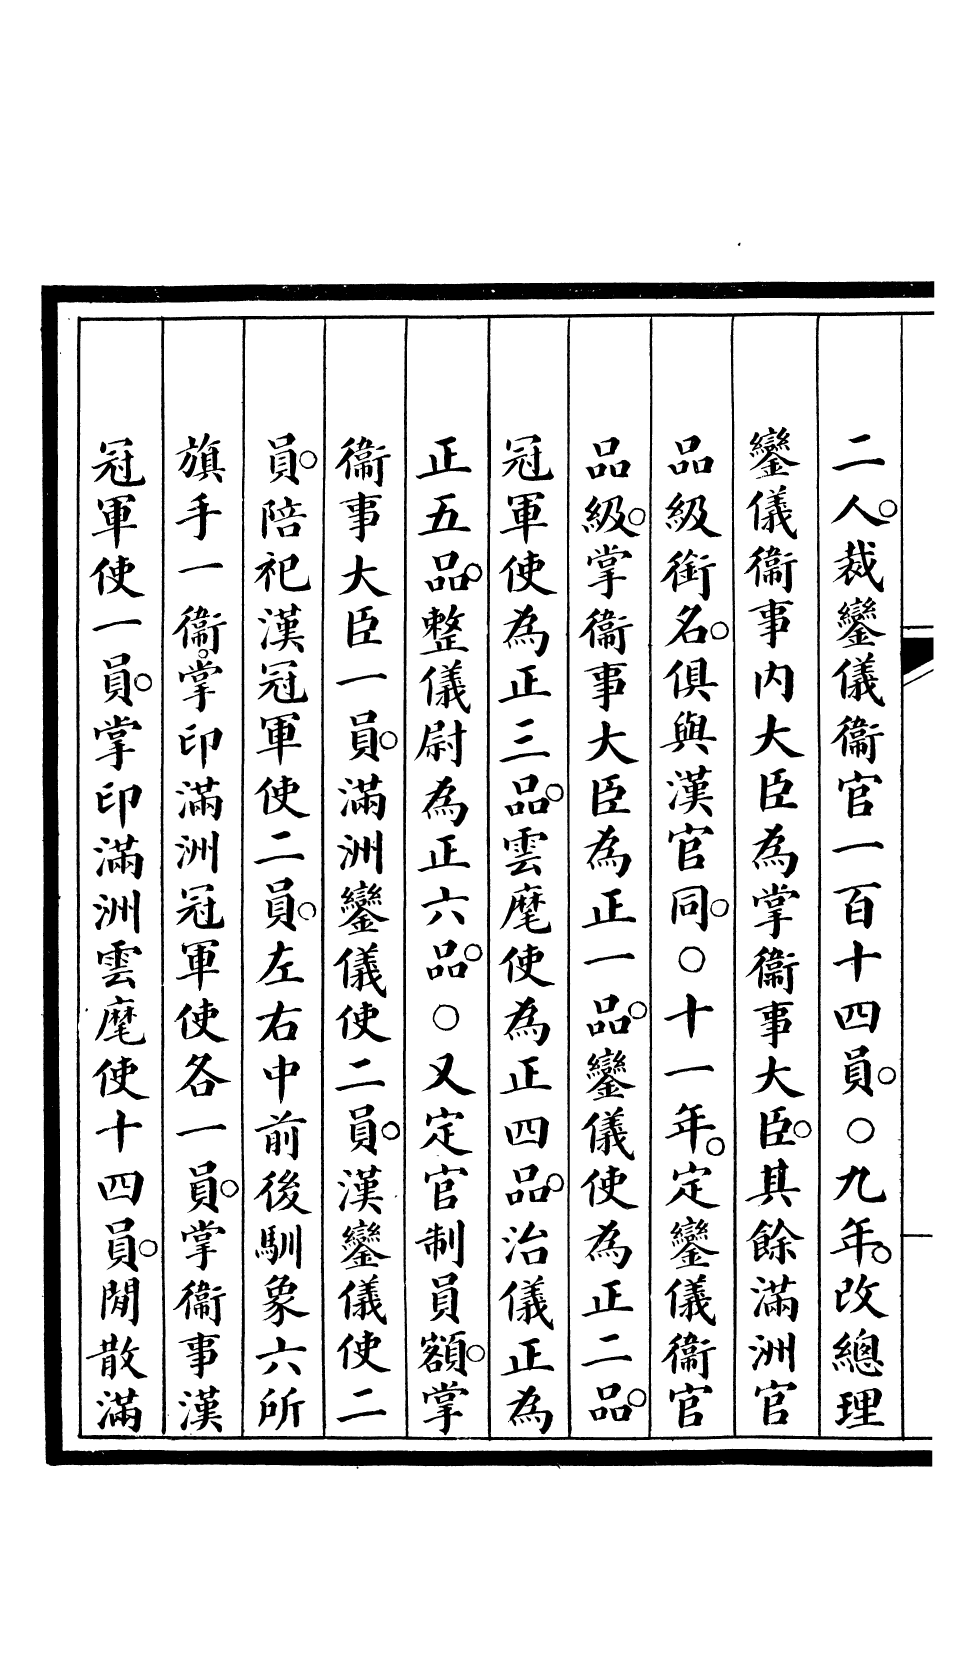 二人。裁鑾儀衞官一百十四員。○九年。改總理
鑾儀衞事內大臣為掌衞事大臣。其餘滿洲官
品級銜名。俱與漢官同。○十一年。定鑾儀衞官
品級。掌衞事大臣為正一品。鑾儀使為正二品。
冠軍使為正三品。雲麾使為正四品。治儀正為
正五品。整儀尉為正六品。○又定官制員額。掌
衞事大臣一員。滿洲鑾儀使二員。漢鑾儀使二
員。陪祀漢冠軍使二員。左右中前後馴象六所
旗手一衞。掌印滿洲冠軍使各一員。掌衞事漢
冠軍使一員。掌印滿洲雲麾使十四員。閒散滿